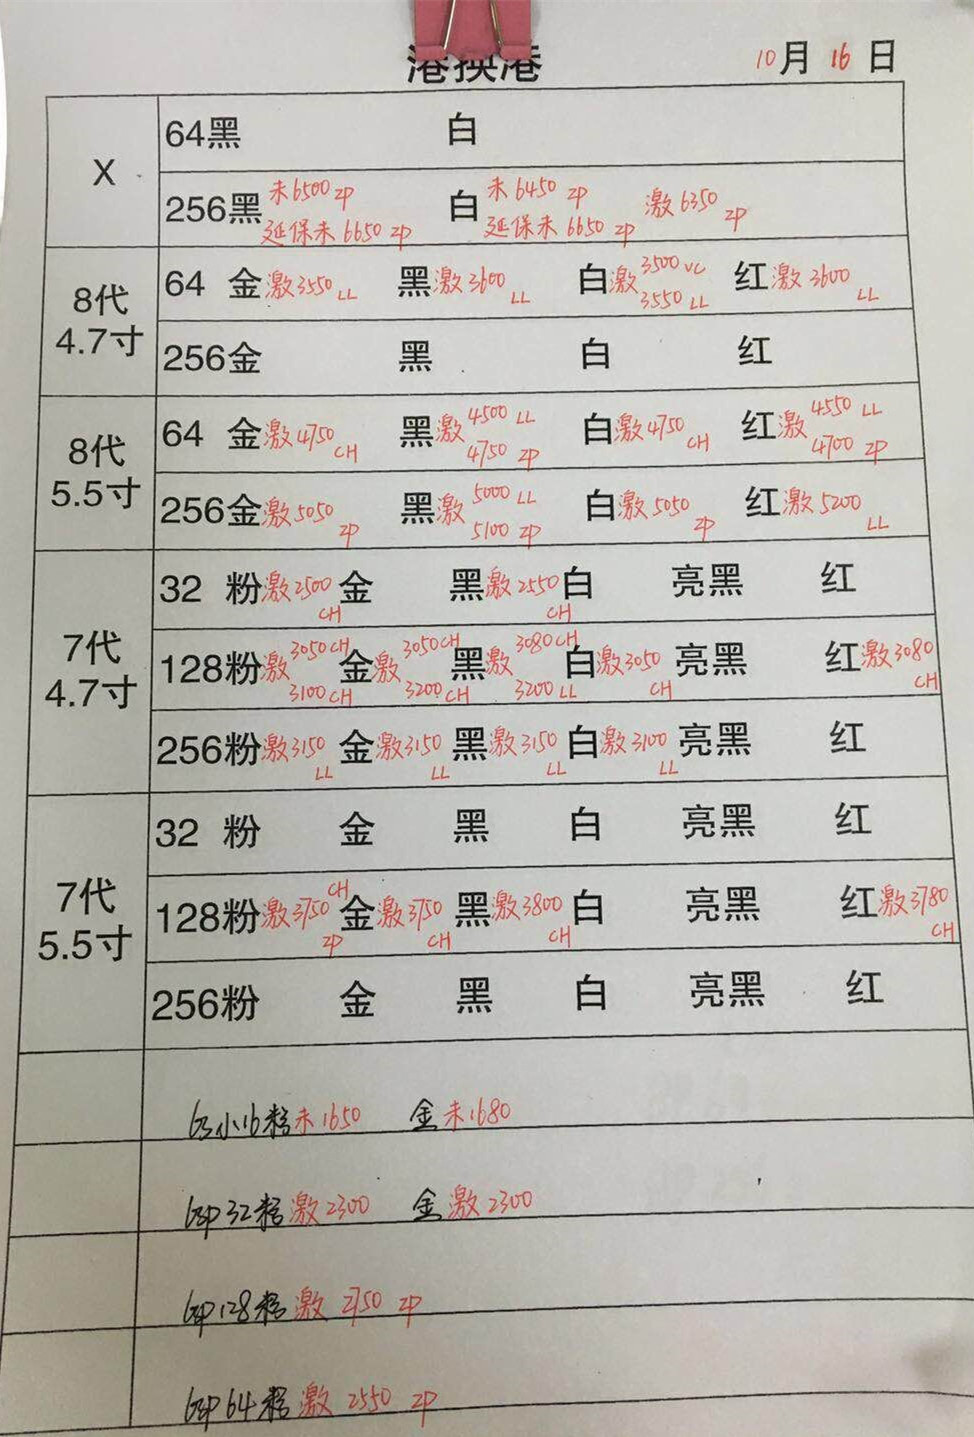 港换港 10月16日
X
64黑 白
256黑 未6500 ZP 延保未6650 ZP 白 未6450 ZP 延保未6650 ZP 激6350 ZP
8代
4.7寸
64 金激3550 LL 黑激3600 LL 白激3500 VC 3550 LL 红激3600 LL
256金 黑 白 红
8代
5.5寸
64 金激4750 CH 黑激4500 LL 4750 ZP 白激4750 CH 红激4550 LL 4700 ZP
256金激5050 ZP 黑激5000 LL 5100 ZP 白激5050 ZP 红激5200 LL
7代
4.7寸
32 粉激2500 CH 金 黑激2550 CH 白 亮黑 红
128粉激3050 CH 3100 CH 金激3050 CH 3200 CH 黑激3080 CH 3200 LL 白激3050 CH 亮黑 红激3080 CH
256粉激3150 LL 金激3150 LL 黑激3150 LL 白激3100 LL 亮黑 红
7代
5.5寸
32 粉 金 黑 白 亮黑 红
128粉激3750 CH ZP 金激3750 CH 黑激3800 CH 白 亮黑 红激3780 CH
256粉 金 黑 白 亮黑 红
6S小16粉未1650 金未1680
6SP32粉激2300 金激2300
6SP128粉激2750 ZP
6SP64粉激2550 ZP